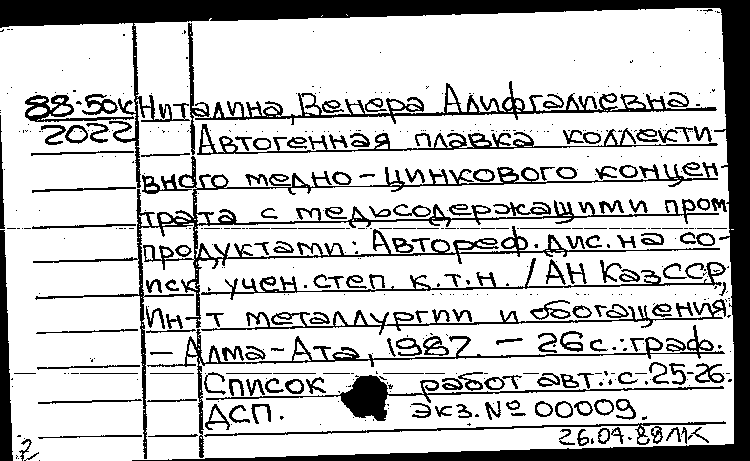 88-50к Ниталина, Венера Алифгалиевна.
2022 Автогенная плавка коллекти-
вного медно-цинкового концен-
трата с медьсодержащими пром-
продуктами: Автореф. дис. на со-
иск. учен. степ. к.т.н. / АН КазССР,
Ин-т металлургии и обогащения.
- Алма-Ата, 1987. - 26 с.: граф.
Список работ авт.: с. 25-26.
ДСП. экз. № 00009.
26.04.88 МК
2